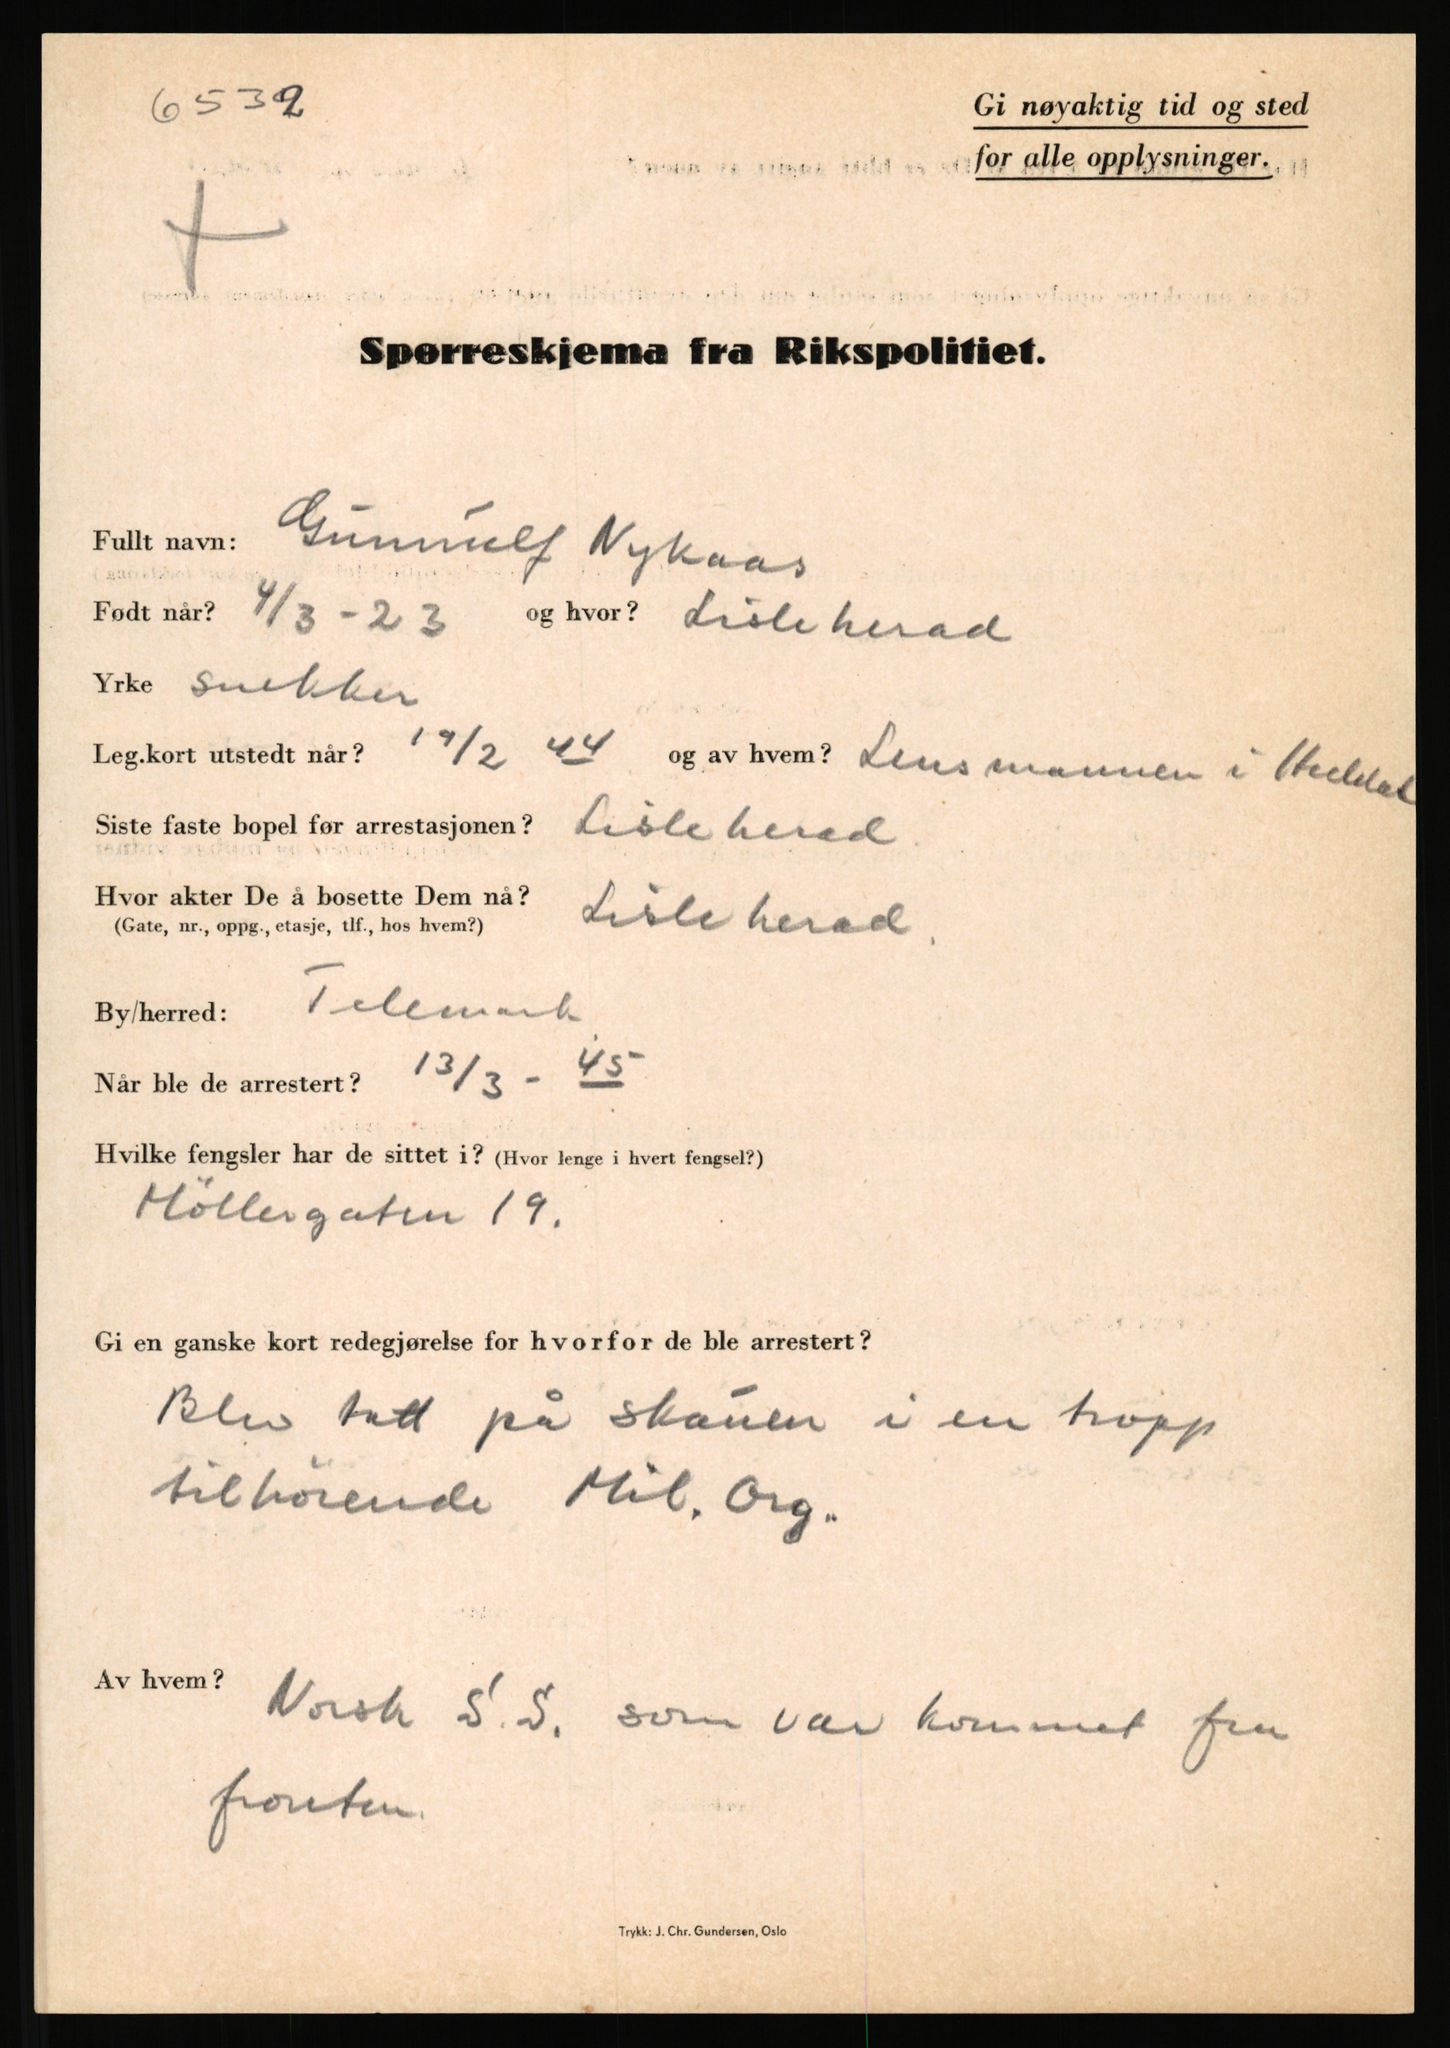 6532
Gi nøyaktig tid og sted
for alle opplysninger.
Spørreskjema fra Rikspolitiet.
Fullt navn: Gunnulf Nykaas
Født når? 4/3-23 og hvor? Lisleherad
Yrke snekker
Leg.kort utstedt når? 19/2 44 og av hvem? Lensmannen i Heddal
Siste faste bopel før arrestasjonen? Lisleherad.
Hvor akter De å bosette Dem nå? Lisleherad.
(Gate, nr., oppg., etasje, tlf., hos hvem?)
By/herred: Telemark
Når ble de arrestert? 13/3 - 45
Hvilke fengsler har de sittet i? (Hvor lenge i hvert fengsel?)
Möllergaten 19.
Gi en ganske kort redegjørelse for hvorfor de ble arrestert?
Blev tatt på skauen i en tropp
tilhörende Mil. Org.
Av hvem? Norsk S.S. som var kommet fra
fronten.
Trykk: J. Chr. Gundersen, Oslo